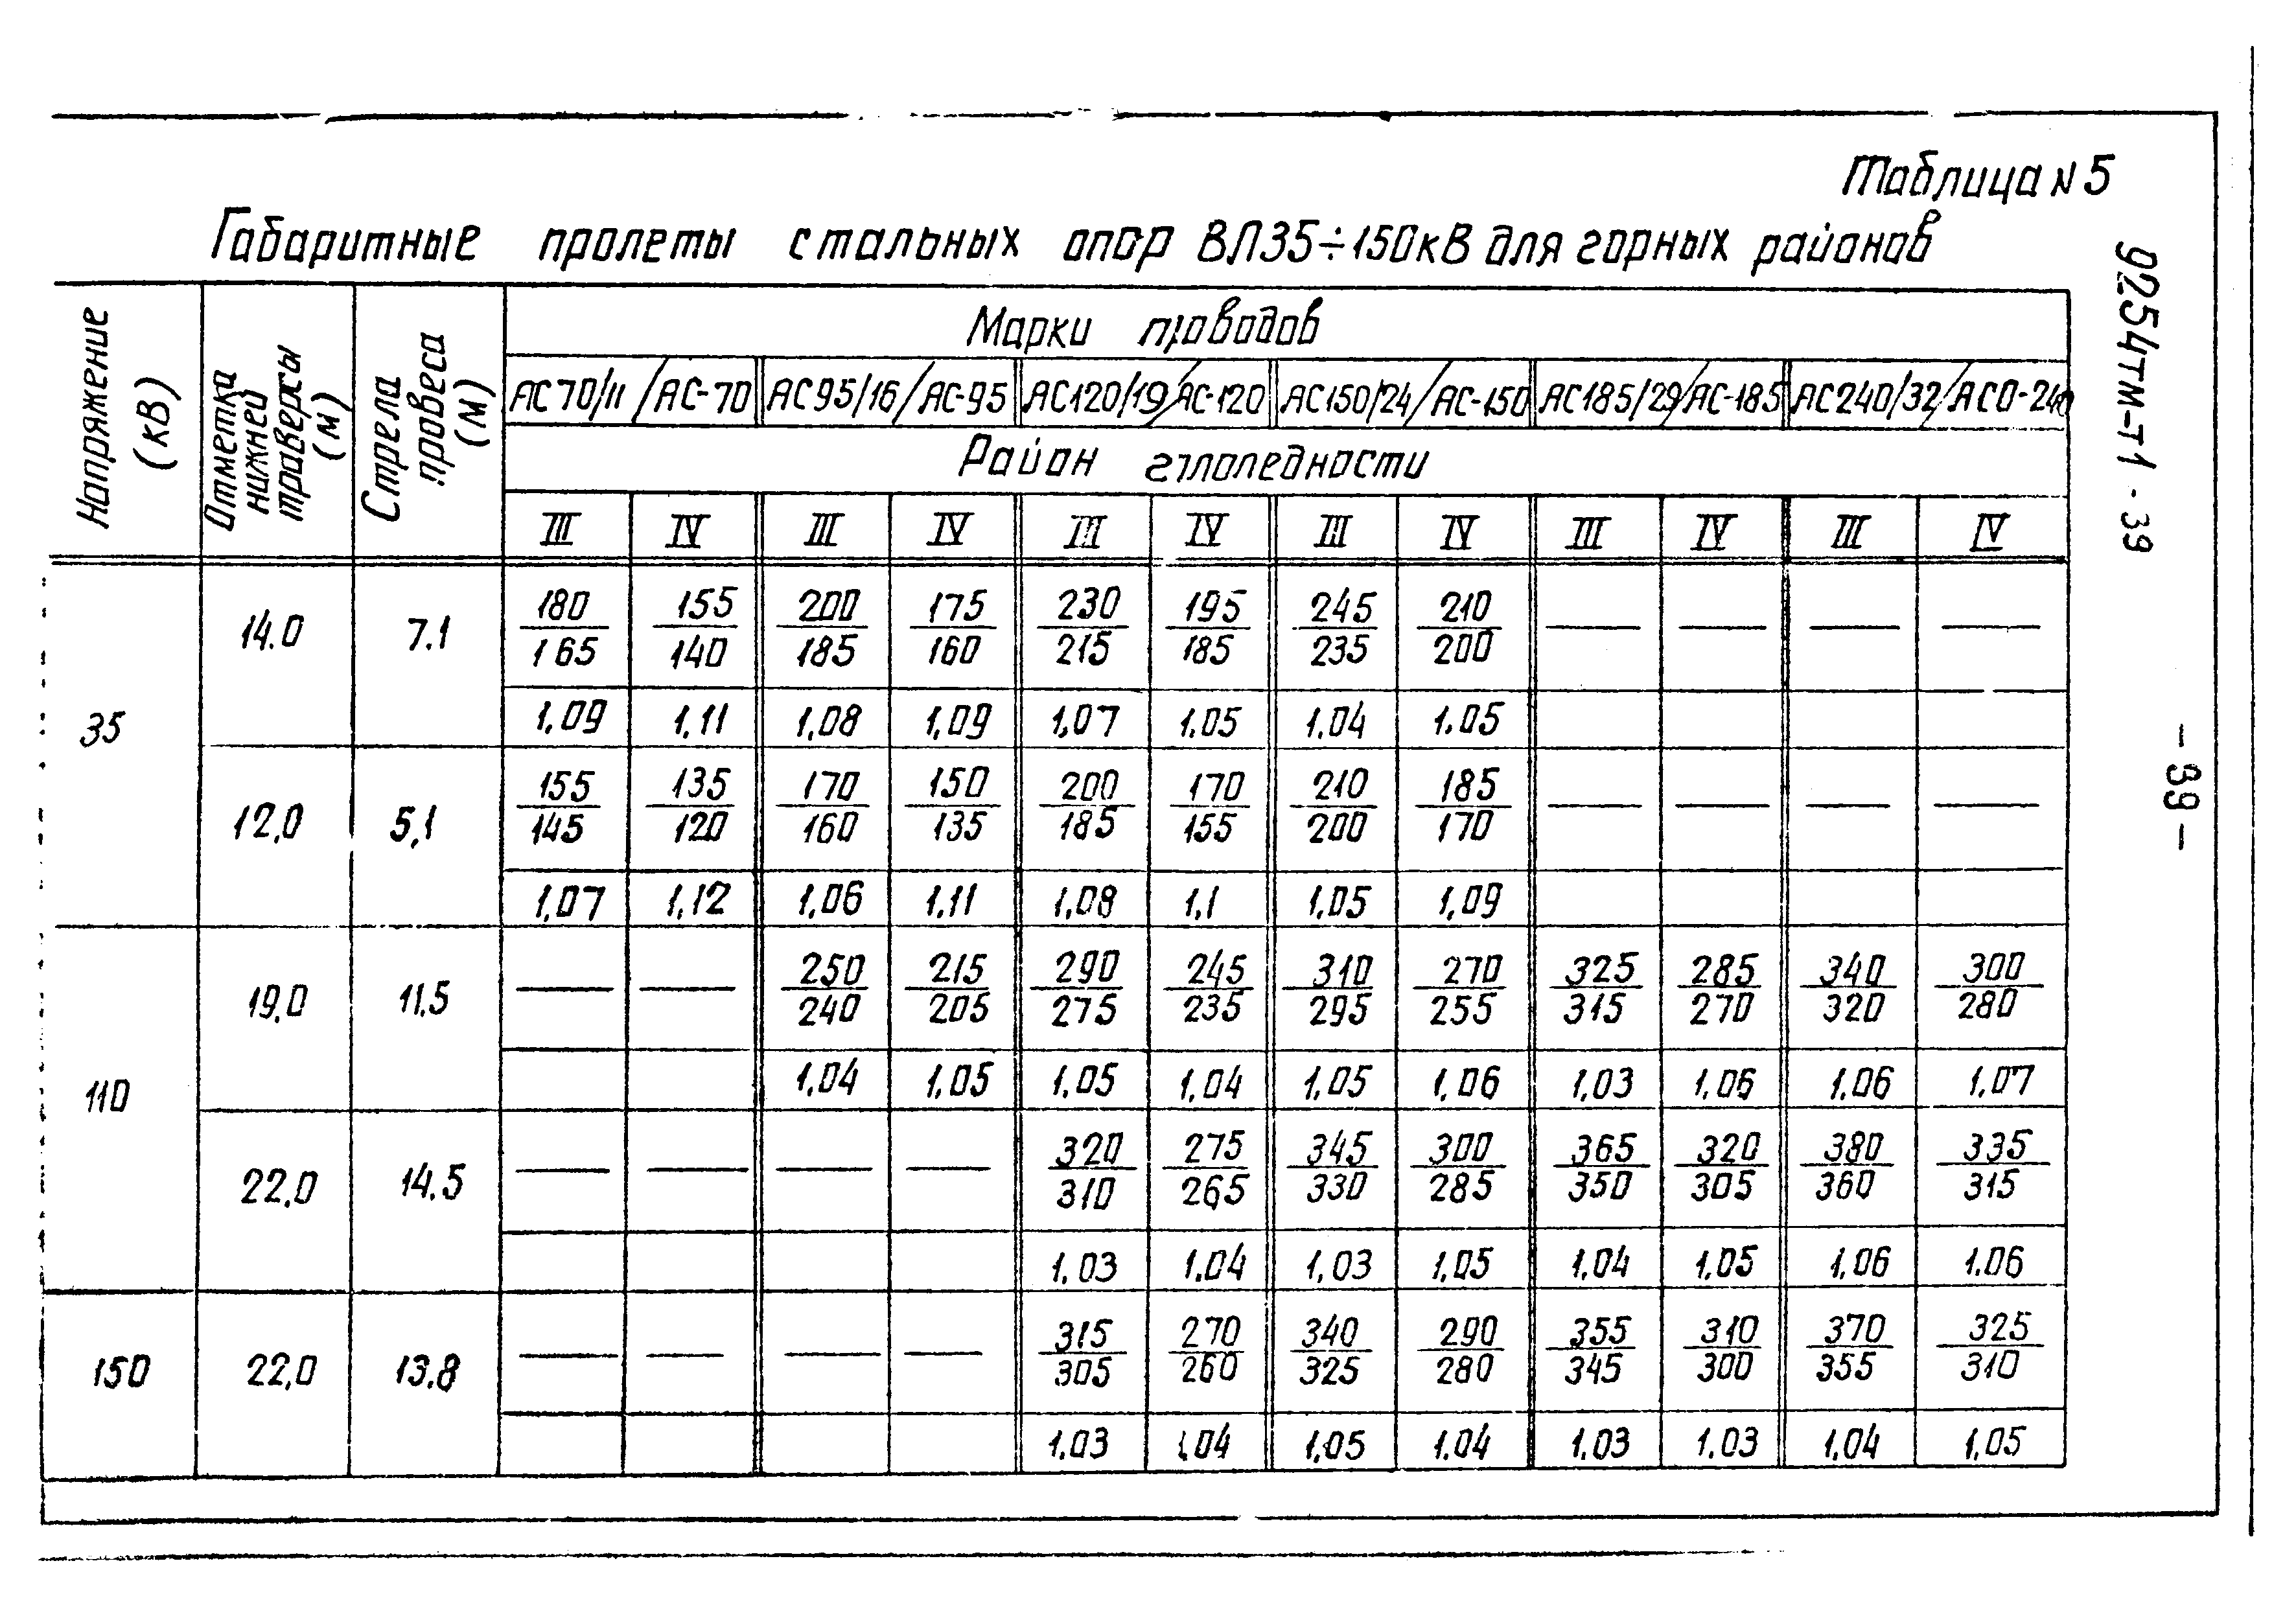 Таблица N 5
Габаритные пролеты стальных опор ВЛ35÷150кВ для горных районов
Напряжение (кВ)
Отметка нижней траверсы (м)
Стрела провеса (м)
Марки проводов
АС70/11 / АС-70 АС95/16 / АС-95 АС120/19 / АС-120 АС150/24 / АС-150 АС185/29 / АС-185 АС240/32 / АСО-240
Район гололедности
III IV III IV III IV III IV III IV III IV
35
14.0 7.1 180/165 155/140 200/185 175/160 230/215 195/185 245/235 210/200 — — — —
1,09 1,11 1,08 1,09 1,07 1,05 1,04 1,05
12,0 5,1 155/145 135/120 170/160 150/135 200/185 170/155 210/200 185/170 — — — —
1,07 1,12 1,06 1,11 1,08 1,1 1,05 1,09
110
19,0 11,5 — — 250/240 215/205 290/275 245/235 310/295 270/255 325/315 285/270 340/320 300/280
1,04 1,05 1,05 1,04 1,05 1,06 1,03 1,06 1,06 1,07
22,0 14,5 — — — — 320/310 275/265 345/330 300/285 365/350 320/305 380/360 335/315
1,03 1,04 1,03 1,05 1,04 1,05 1,06 1.06
150 22,0 13,8 — — — — 315/305 270/260 340/325 290/280 355/345 310/300 370/355 325/310
1,03 1,04 1,05 1,04 1,03 1,03 1,04 1,05
9254тм-т1 - 39
- 39 -